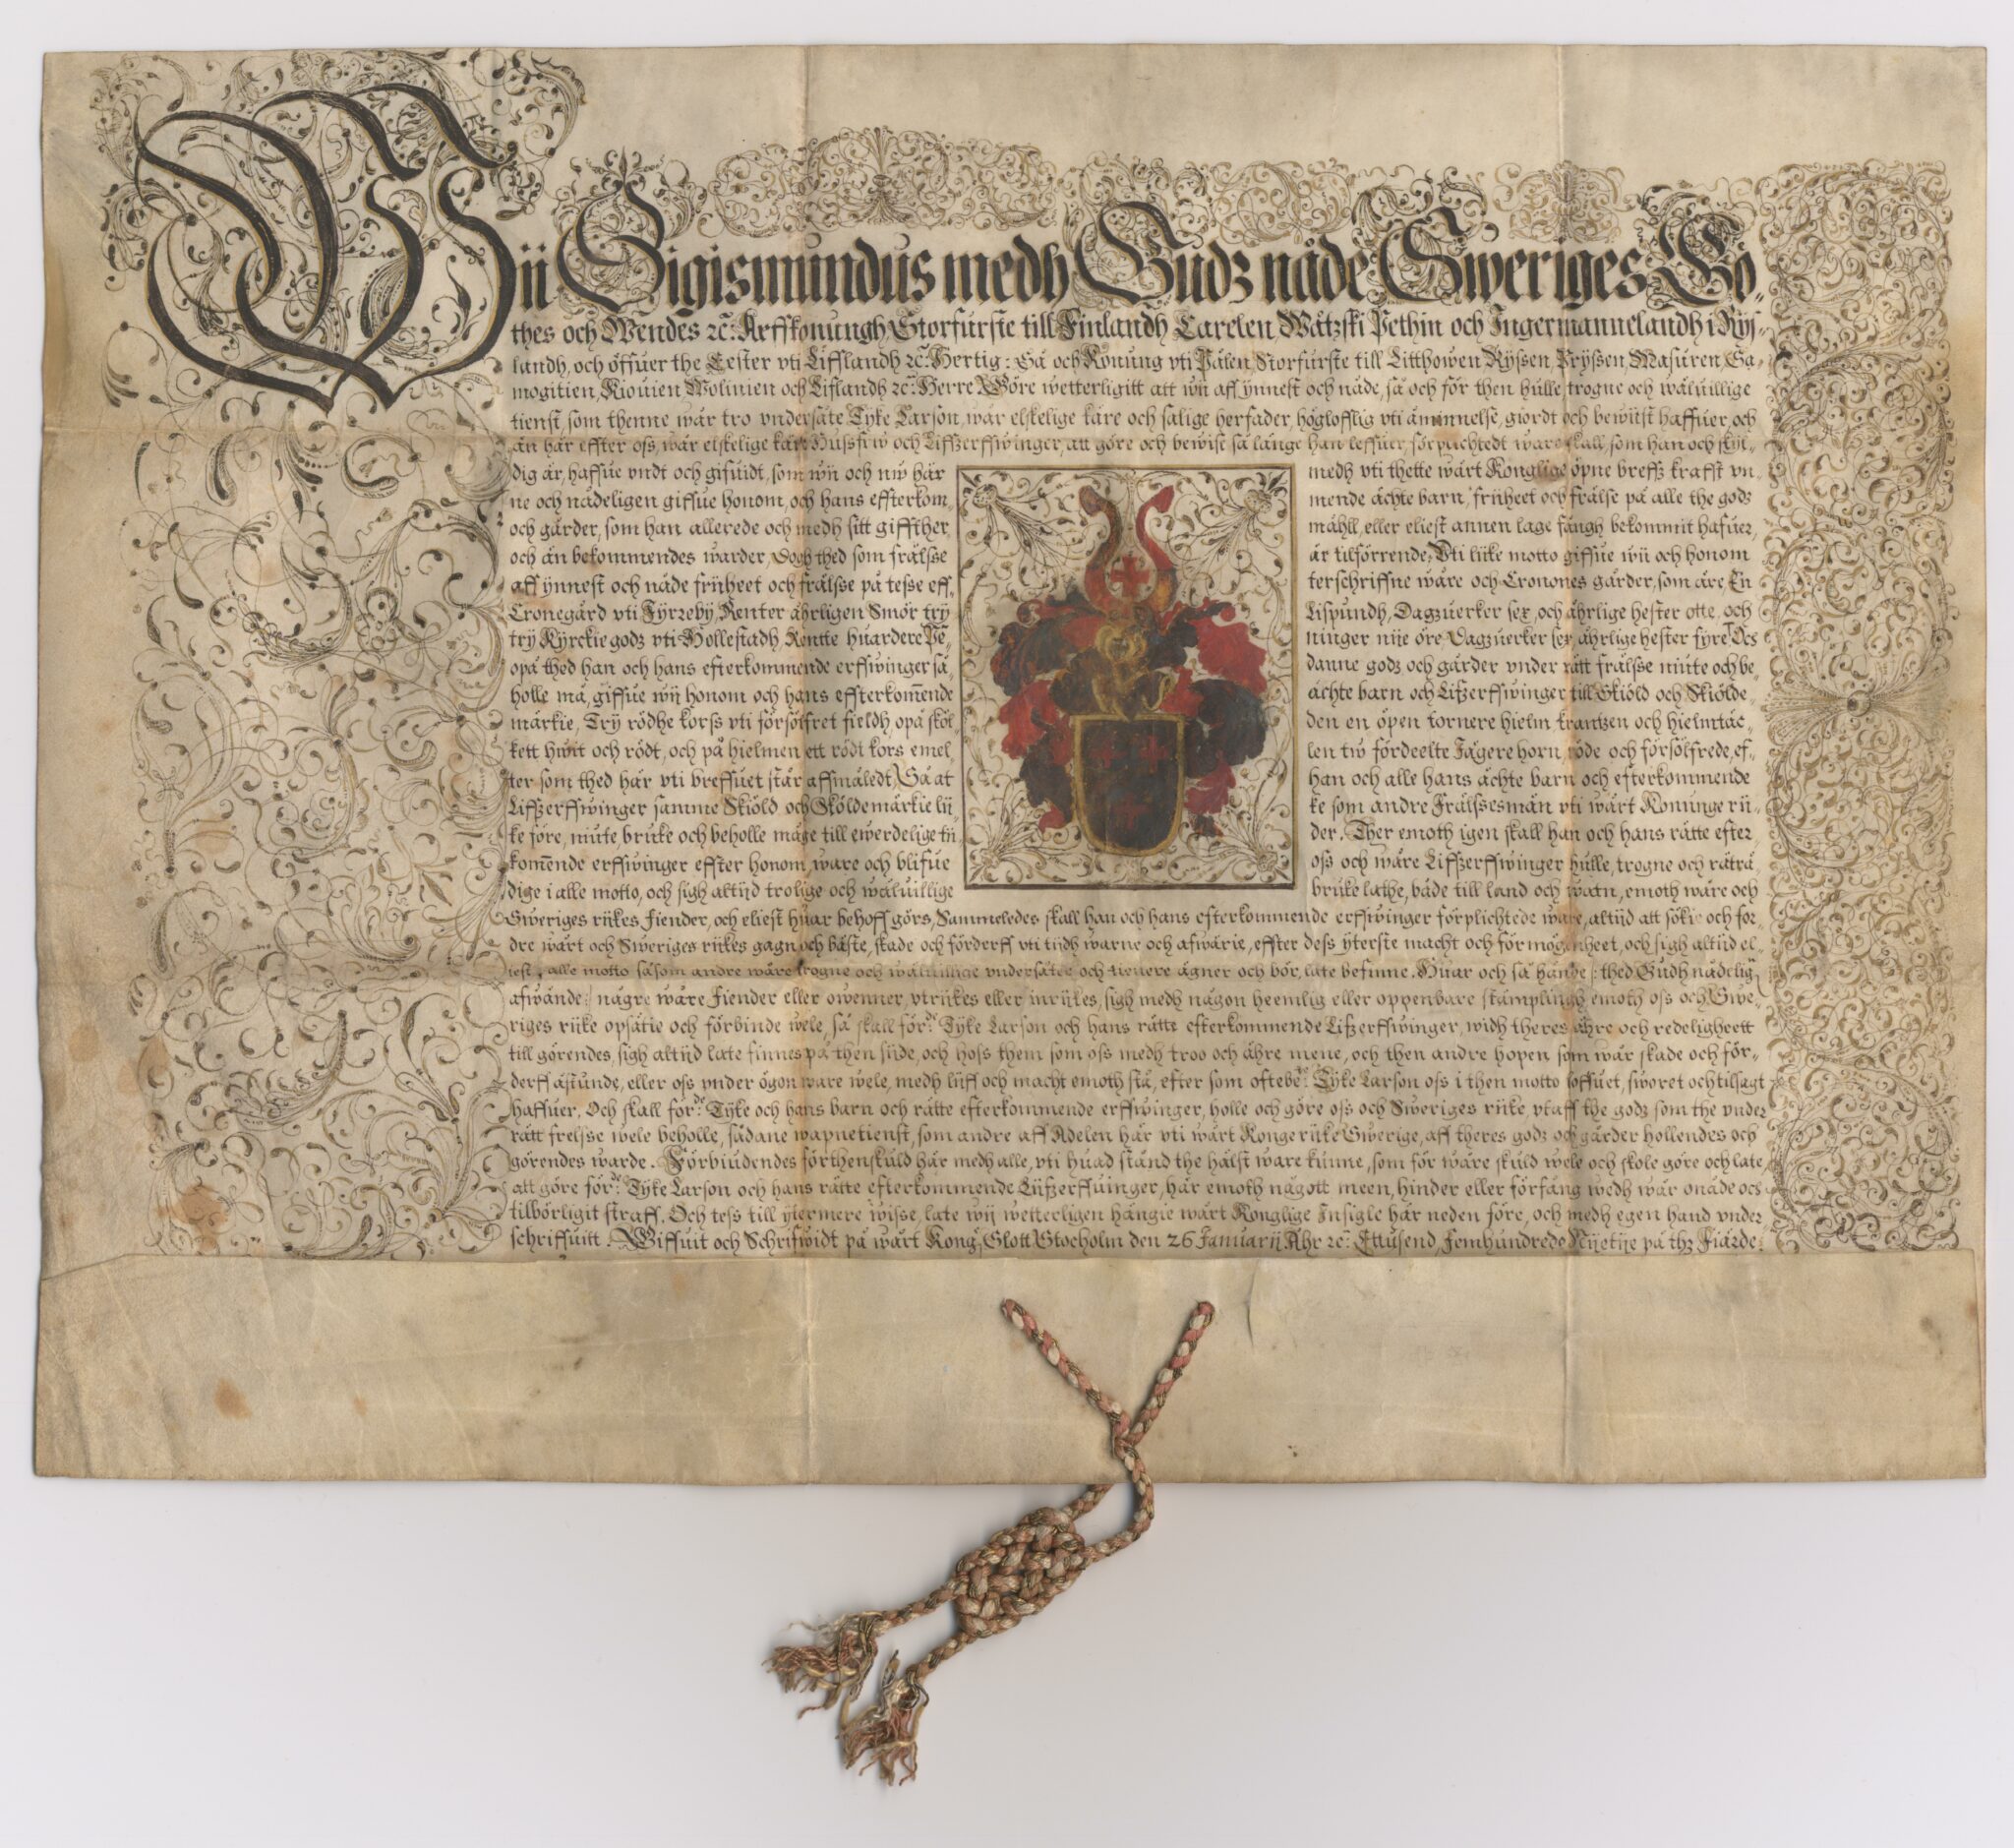 Wii Sigismundus medh Gudz nåde Sweriges Gö„
thes och Wendes ꝛc̃: Arffkonungh, Storfurste till Finlandh Carelen, Wätzski Pethin och Ingermannelandh i Rÿs„
landh, och öffuer the Eester vti Lifflandh ꝛc̃: Hertig: Så och Konung vti Pålen, Storfurste till Litthowen, Rÿssen, Prÿssen, Masuren, Sa„
mogitien, Kiouien, Wolinien och Liflandh ꝛc̃: Herre Göre wetterligitt att wij aff ÿnnest och nåde, så och för then hulle, trogne och wäluillige
tienst, som thenne wår tro vndersåte Tÿke Larson, wår elskelige käre och salige herfader, höglofflig vti åminnelse, giordt och bewiist haffuer, och
än här effter oss, wår elskelige käre Hussfrw och Liffzerffwinger, att göre och bewise så länge han leffuer, förplichtedt ware skall, som han och skÿl„
dig är, haffue vndt och gifuidt, som wij och nw här medh vti thette wårt Konglige öpne breffz krafft vn„
ne och nådeligen giffue honom, och hans effterkom„ mende ächte barn, friiheet och frälse på alle the godz
och gårder, som han allerede och medh sitt giffther„ måhll, eller eliest annen lage fångh bekommit hafuer,
och än bekommendes warder, doch thed som frälsse är tilförrende, Vti liike motto giffue wij och honom
aff ÿnnest och nåde friiheet och frälsse på tesse eff„ terschriffne wåre och Cronones gårder, som äre En
Cronegård vti Fÿrzebÿ, Renter åhrligen Smör trÿ Lispundh, Dagzuerker sex, och åhrlige hester otte, och
trÿ Kÿrckie godz vti Hollestadh, Rentte huardere Pe„ ninger niie öre, Dagzuerker sex, åhrlige hester fÿre, Des
opå thed han och hans efterkommende erffwinger så„ danne godz och gårder vnder rätt frälsse niute och be„
holle må, giffue wij honom och hans effterkom̃ende ächte barn och Lifzerffwinger till Skiöld och Skiölde„
märkie, Trÿ rödhe korss vti försölfret fieldh, opå sköl„ den en öpen tornere hielm krantzen och hielmtäc„
kett hwit och rödt, och på hielmen ett rödt kors emel„ len tw fördeelte Jägere horn, röde och försölfrede, ef„
ter som thed här vti breffuet står affmåledt, Så at han och alle hans ächte barn och efterkommende
Liffzerffwinger samme Skiöld och Sköldemärkie lii„ ke som andre Frälssesmän vti wårt Konunge rii„
ke före, niute, bruke och beholle måge till ewerdelige tij„ der. Ther emoth igen skall han och hans rätte efter
kom̃ende erffwinger effter honom, ware och blifue oss och wåre Liffzerffwinger hulle, trogne och rätrå„
dige i alle motto, och sigh altijd trolige och wäluillige bruke lathe, både till land och watn, emoth wåre och
Sweriges riikes fiender, och eliest huar behoff görs, Sammeledes skall han och hans efterkommende erffwinger förplichtede ware, altijd att sökie och for„
dre wårt och Sweriges riikes gagn och bäste, skade och förderff vti tijdh warne och afwärie, effter dess ÿterste macht och förmögenheet, och sigh altijd el„
iest i alle motto såsom andre wåre trogne och wäluillige vndersåter och tienere ägner och bör, late befinne. Huar och så hände /: thed Gudh nådelig
afwände :/ någre wåre fiender eller owenner, vtriikes eller inriikes, sigh medh någon heemlig eller oppenbare stämplingh emoth oss och Swe„
riges riike opsätie och förbinde wele, så skall förde: Tÿke Larson och hans rätte efterkommende Lifzerffwinger, widh theres ähre och redeligheett
till görendes, sigh altijd late finnes på then siide, och hoss them som oss medh troo och ähre mene, och then andre hopen som wår skade och för„
derff åstunde, eller oss vnder ögon ware wele, medh liiff och macht emoth stå, efter som oftebe:de Tÿke Larson oss i then motto loffuet, sworet och tilsagt
haffuer. Och skall förde: Tÿke och hans barn och rätte efterkommende erffwinger, holle och göre oss och Sweriges riike, vtaff the godz som the vnder
rätt frelsse wele beholle, sådane wapnetienst, som andre aff Adelen här vti wårt Konge riike Swerige, aff theres godz och gårder hollendes och
görendes warde. Förbiudendes förthenskuld här medh alle, vti huad stånd the hälst ware kunne, som för wåre skuld wele och skole göre och late
att göre förde: Tÿke Larson och hans rätte efterkommende Liifzerffuinger, här emoth någott meen, hinder eller förfång wedh wår onåde ocs
tilbörligit straff. Och tess till ÿtermere wisse, late wij wetterligen hängie wårt Konglige Insigle här neden före, och medh egen hand vnder
schriffuitt. Giffuit och Schrifwidt på wårt Kong: Slott Stocholm den 26 Januarij Åhr ꝛc̃: Ettusend, Femhundrede Nijetije på thz Fiärde: